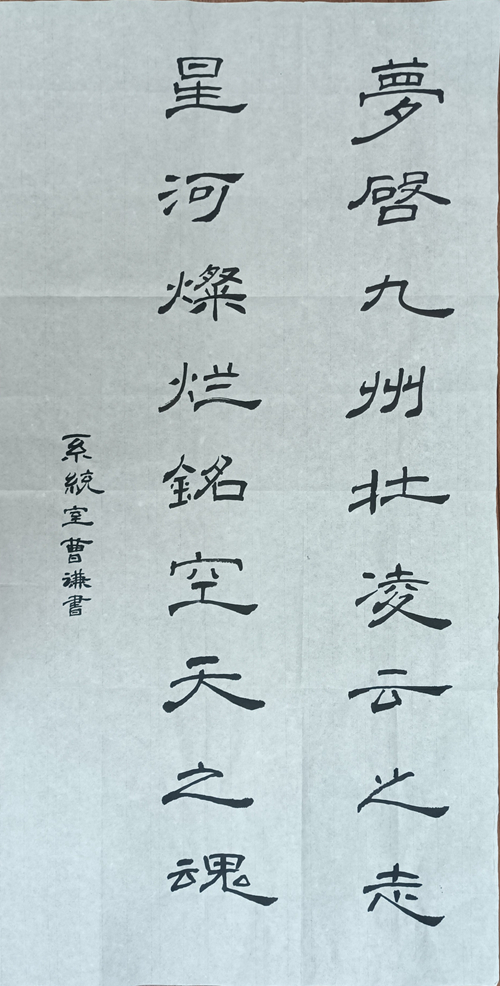 夢啓九州壮凌云之志
星河燦烂銘空天之魂
系統室曹謙書